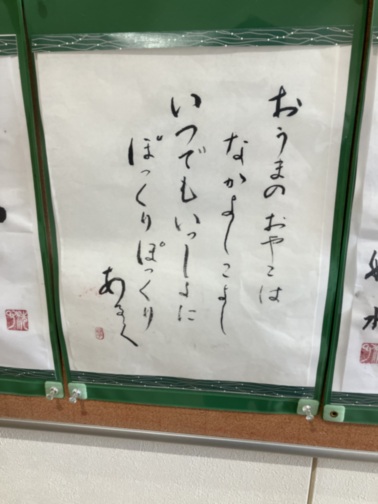 おうまの おやこは
なかよしこよし
いつでもいっしょに
ぽっくりぽっくり
あるく